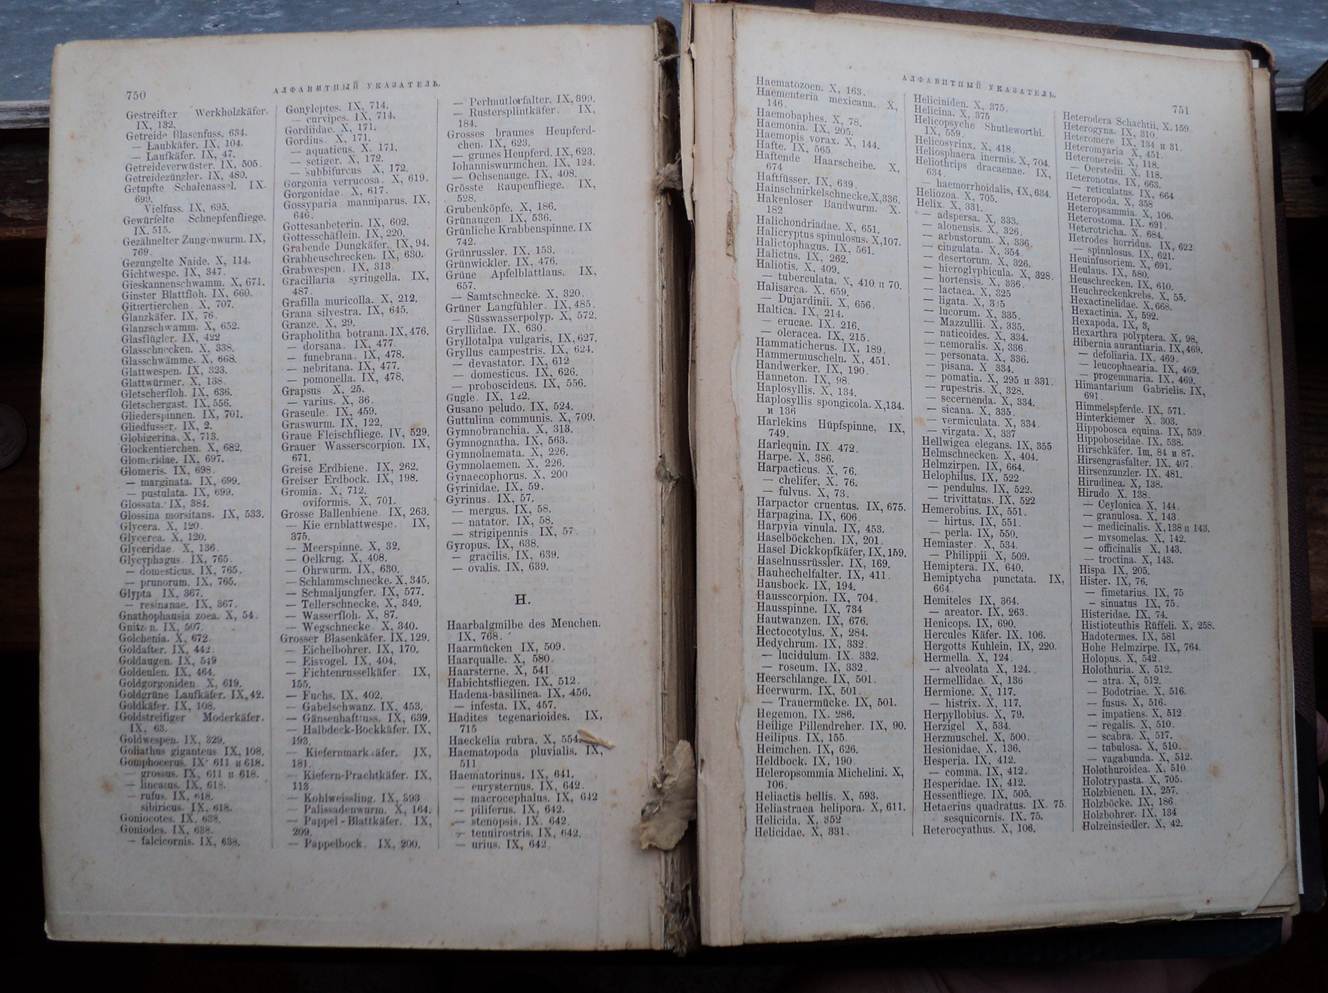 750
АЛФАВИТНЫЙ УКАЗАТЕЛЬ.
Gestreifter Werkholzkäfer.
IX, 132.
Getreide Blasenfuss. 634.
— Laubkäfer. IX, 104.
— Laufkäfer. IX, 47.
Getreideverwüster. IX, 505.
Getreidezünsler. IX, 480.
Getupfte Schalenassel. IX.
699.
Vielfuss. IX, 695.
Gewürfelte Schnepfenfliege.
IX. 515.
Gezähnelter Zungenwurm. IX,
769.
Gezungelte Naide. X, 114.
Gichtwespe. IX, 347.
Gieskannenschwamm. X, 671.
Ginster Blattfloh. IX, 660.
Gittertierchen X, 707.
Glanzkäfer. IX, 76.
Glanzschwamm. X, 652.
Glasflügler. IX, 422
Glasschnecken. X, 338.
Glasschwämme. X, 668.
Glattwespen. IX, 323.
Glattwürmer. X, 138.
Gletscherfloh. IX, 636.
Gletschergast. IX, 556.
Gliederspinnen. IX, 701.
Gliedfüsser. IX, 2.
Globigerina. X, 713.
Glockentierchen. X, 682.
Glomeridae. IX, 697.
Glomeris. IX, 698.
— marginata. IX, 699.
— pustulata. IX, 699.
Glossata. IX, 384.
Glossina morsitans. IX, 533.
Glycera. X, 120.
Glycerea. X, 120.
Glyceridae. X, 136.
Glycyphagus. IX, 765.
— domesticus. IX, 765.
— prunorum. IX, 765.
Glypta IX, 367.
— resinanae. IX, 367.
Gnathophausia zoea. X, 54.
Gnitzen. IX, 507.
Golchenia. X, 672.
Goldafter. IX, 442.
Goldaugen. IX, 549
Goldeulen. IX, 464.
Goldgorgoniden X, 619.
Goldgrüne Laufkäfer. IX, 42.
Goldkäfer. IX, 108.
Goldstreifiger Moderkäfer.
IX, 63.
Goldwespen. IX, 329.
Goliathus giganteus IX, 108.
Gomphocerus. IX 611 и 618.
— grossus. IX, 611 и 618.
— lineatus. IX, 618.
— rufus. IX, 618.
sibiricus. IX, 618.
Goniocotes. IX, 638.
Goniodes. IX, 638.
— falcicornis. IX, 638.
Gonyleptes. IX, 714.
— curvipes. IX, 714.
Gordiidae. X, 171.
Gordius. X, 171.
— aquaticus. X, 171.
— setiger. X, 172.
— subbifurcus X, 172.
Gorgonia verrucosa. X, 619.
Gorgonidae. X, 617.
Gossyparia manniparus. IX,
646.
Gottesanbeterin. IX, 602.
Gottesschäflein. IX, 220.
Grabende Dungkäfer. IX, 94.
Grabheuschrecken. IX, 630.
Grabwespen. IX, 313
Gracillaria syringella. IX,
487.
Grafilla muricolla. X, 212.
Grana silvestra. IX, 645.
Granze. X, 29.
Grapholitha botrana. IX, 476.
— dorsana. IX, 477.
— funebrana. IX, 478.
— nebritana. IX, 477.
— pomonella. IX, 478.
Grapsus X, 25.
— varius. X, 36.
Graseule. IX, 459.
Graswurm. IX, 122.
Graue Fleischfliege. IV, 529.
Grauer Wasserscorpion. IX,
671.
Greise Erdbiene. IX, 262.
Greiser Erdbock. IX, 198.
Gromia. X, 712.
oviformis. X, 701.
Grosse Ballenbiene IX, 263.
— Kie ernblattwespe. IX,
375.
— Meerspinne. X, 32.
— Oelkrug. X, 408.
— Ohrwurm. IX, 630.
— Schlammschnecke. X, 345.
— Schmaljungfer. IX, 577.
— Tellerschnecke. X, 349.
— Wasserfloh. X, 87.
— Wegschnecke X, 340.
Grosser Blasenkäfer. IX, 129.
— Eichelbohrer. IX, 170.
— Eisvogel. IX, 404.
— Fichtenrusselkäfer IX,
155.
— Fuchs. IX, 402.
— Gabelschwanz. IX, 453.
— Gänsenhaftfuss. IX, 639.
— Halbdeck-Bockkäfer. IX,
193.
— Kiefernmarkkäfer. IX,
181.
— Kiefern-Prachtkäfer. IX,
113
— Kohlweissling. IX, 393
— Palissadenwurm. X, 164.
— Pappel-Blattkäfer. IX,
209.
— Pappelbock. IX, 200.
— Perlmutterfalter. IX, 399.
— Rustersplintkäfer IX,
184.
Grosses braunes Heupferd-
chen. IX, 623.
— grunes Heupferd. IX, 623.
Iohanniswurmchen. IX, 124.
— Ochsenauge. IX, 408.
Grösste Raupenfliege. IX,
528.
Grubenköpfe. X, 186.
Grünaugen IX, 536.
Grünliche Krabbenspinne. IX
742.
Grünrussler. IX, 153.
Grünwickler. IX, 476.
Grüne Apfelblattlaus. IX,
657.
— Samtschnecke. X, 320.
Grüner Langfühler. IX, 485.
— Süsswasserpolyp. X, 572.
Gryllidae. IX, 630.
Gryllotalpa vulgaris. IX, 627.
Gryllus campestris. IX, 624.
— devastator. IX, 612
— domesticus. IX, 626.
— proboscideus. IX, 556.
Gugle. IX, 122.
Gusano peludo. IX, 524.
Guttulina communis. X, 709.
Gymnobranchia. X, 313.
Gymnognatha. IX, 563.
Gymnolaemata. X, 226.
Gymnolaemen. X, 226.
Gynaecophorus. X, 200
Gyrinidae. IX, 59.
Gyrinus. IX, 57.
— mergus. IX, 58.
— natator. IX, 58.
— strigipennis IX, 57.
Gyropus. IX, 638.
— gracilis. IX, 639.
— ovalis. IX, 639.
H.
Haarbalgmilbe des Menchen.
IX, 768.
Haarmücken IX, 509.
Haarqualle. X, 580.
Haarsterne. X, 541
Habichtsfliegen. IX, 512
Hadena-basilinea. IX, 456.
— infesta. IX, 457.
Hadites tegenarioides. IX,
715
Haeckelia rubra. X, 554
Haematopoda pluvialis. IX,
511
Haematorinus. IX, 641.
— eurysternus. IX, 642.
— macrocephalus. IX, 642
— piliferus. IX, 642.
— stenopsis. IX, 642.
— tennirostris. IX, 642.
— urius. IX, 642.
АЛФАВИТНЫЙ УКАЗАТЕЛЬ.
751
Haematozoen. X, 163.
Haementeria mexicana. X,
146.
Haemobaphes. X, 78.
Haemonia. IX, 205.
Haemopis vorax. X, 144.
Hafte. IX, 565
Haftende Haarscheibe. X,
674
Haftfüsser. IX, 639.
Hainschnirkelschnecke. X, 336.
Hakenloser Bandwurm. X.
182
Halichondriadae. X, 651.
Halicryptus spinulosus. X, 107.
Halictophagus. IX, 561.
Halictus. IX, 262.
Haliotis. X, 409.
— tuberculata. X, 410 и 70.
Halisarca. X, 659.
— Dujardinii. X, 656.
Haltica. IX, 214.
— erucae. IX. 216.
— oleracea. IX, 215.
Hammaticherus. IX, 189.
Hammermuscheln. X, 451.
Handwerker. IX, 190.
Hanneton. IX, 98.
Haplosyllis. X, 134.
Haplosyllis spongicola. X, 134.
и 136
Harlekins Hüpfspinne. IX,
749.
Harlequin. IX 472.
Harpe. X, 386.
Harpacticus. X, 76.
— chelifer. X, 76.
— fulvus. X, 73.
Harpactor cruentus. IX, 675.
Harpagina. IX, 606.
Harpyia vinula. IX, 453.
Haselböckchen. IX, 201.
Hasel Dickkopfkäfer. IX, 159.
Haselnussrüssler. IX, 169.
Hauhechelfalter. IX, 411.
Hausbock. IX, 194.
Hausscorpion. IX, 704.
Hausspinne. IX, 734
Hautwanzen. IX, 676.
Hectocotylus. X, 284.
Hedychrum. IX, 332
— lucidulum. IX 332.
— roseum. IX, 332.
Heerschlange. IX, 501.
Heerwurm. IX, 501.
— Trauermücke. IX, 501.
Hegemon. IX, 286.
Heilige Pillendreher. IX, 90.
Heilipus. IX, 155.
Heimchen. IX, 626.
Heldbock. IX, 190.
Heleropsommia Michelini. X,
106.
Heliactis bellis. X, 593.
Heliastraea helipora. X, 611.
Helicida. X, 352
Helicidae. X, 331.
Heliciniden. X, 375.
Helicina. X, 375
Helicopsyche Shutleworthi.
IX, 559.
Helicosvrinx. X, 418.
Heliosphaera inermis. X, 704.
Heliothrips dracaenae. IX,
634.
— haemorrhoidalis. IX, 634.
Heliozoa. X, 705.
Helix. X, 331.
— adspersa. X, 333.
— alonensis. X, 326.
— arbustorum. X, 336.
— cingulata. X, 354.
— desertorum. X, 326.
— hieroglyphicula. X, 328.
— hortensis. X, 336.
— lactaea. X, 325
— ligata. X, 335
— lucorum. X, 335.
— Mazzullii. X, 335.
— naticoides. X, 334.
— nemoralis. X, 336
— personata. X, 336.
— pisana. X 334.
— pomatia. X, 295 и 331.
— rupestris. X, 328.
— secernenda. X, 334.
— sicana. X, 335.
— vermiculata. X, 334.
— virgata. X, 337
Hellwigea elegans. IX, 355
Helmschnecken. X, 404.
Helmzirpen. IX, 664.
Helophilus. IX, 522
— pendulus. IX, 522.
— trivittatus. IX, 522
Hemerobius. IX, 551.
— hirtus. IX, 551.
— perla. IX, 550.
Hemiaster. X, 534.
— Philippii. X, 509.
Hemiptera. IX, 640.
Hemiptycha punctata. IX,
664.
Hemiteles IX, 364.
— areator. IX, 263.
Henicops. IX, 690.
Hercules Käfer. IX. 106.
Hergotts Kuhlein, IX, 220.
Hermella. X, 124.
— alveolata X, 124.
Hermellidae. X, 136
Hermione. X, 117.
— histrix. X, 117.
Herpyllobius. X, 79.
Herzigel. X, 534
Herzmuschel. X, 500.
Hesionidae. X, 136.
Hesperia. IX, 412.
— comma. IX, 412.
Hesperidae. IX, 412.
Hessenfliege. IX, 505.
Hetaerius quadratus. IX. 75
sesquicornis. IX. 75.
Heterocyathus. X, 106.
Heterodera Schachtii. X, 159.
Heterogyna. IX, 310.
Heteromere IX, 134 и 31.
Heteromyaria X, 451.
Heteronereis. X, 118.
— Oerstedii. X, 118.
Heteronotus. IX, 663.
— reticulatus. IX, 664
Heteropoda. X, 358
Heteropsammia. X, 106.
Heterostoma. IX. 691.
Heterotricha. X, 684.
Hetrodes horridus. IX, 622
— spinulosus. IX, 621.
Heuinfusoriem. X, 691.
Heulaus. IX, 580.
Heuschrecken. IX, 610.
Heuschreckenkrebs. X, 55.
Hexactinelidae. X, 668.
Hexactinia. X, 592.
Hexapoda. IX, 3,
Hexarthra polyptera. X, 98.
Hibernia aurantiaria. IX, 469.
— defoliaria. IX. 469.
— leucophaearia. IX, 469.
— progemmaria. IX, 469.
Himantarium Gabrielis. IX,
691
Himmelspferde. IX, 571.
Hinterkiemer X. 303.
Hippobosca equina. IX, 539.
Hippoboscidae. IX, 538.
Hirschkäfer. Im, 84 и 87.
Hirsengrasfalter. IX. 407.
Hirsenzunzler. IX. 481.
Hirudinea. X, 138.
Hirudo X, 138.
— Ceylonica. X, 144.
— granulosa. X, 143
— medicinalis. X, 138 и 143.
— mysomelas. X, 142.
— officinalis X, 143.
— troctina. X, 143.
Hispa IX, 205.
Hister. IX, 76.
— fimetarius. IX, 75
— sinuatus IX, 75.
Histeridae. IX, 74.
Histioteuthis Rüffeli. X, 258.
Hadotermes. IX, 581
Hohe Helmzirpe. IX, 764.
Holopus. X, 542.
Holothuria. X, 512.
— atra. X, 512.
— Bodotriae. X, 516.
— fusus. X, 516.
— impatiens X, 512
— regalis. X, 510.
— scabra. X, 517.
— tubulosa. X, 510.
— vagabunda. X, 512.
Holothuroidea. X, 510.
Holotrypasta. X, 705.
Holzbienen. IX, 257.
Holzböcke. IX, 186
Holzbohrer. IX, 134
Holzeinsiedler. X, 42.